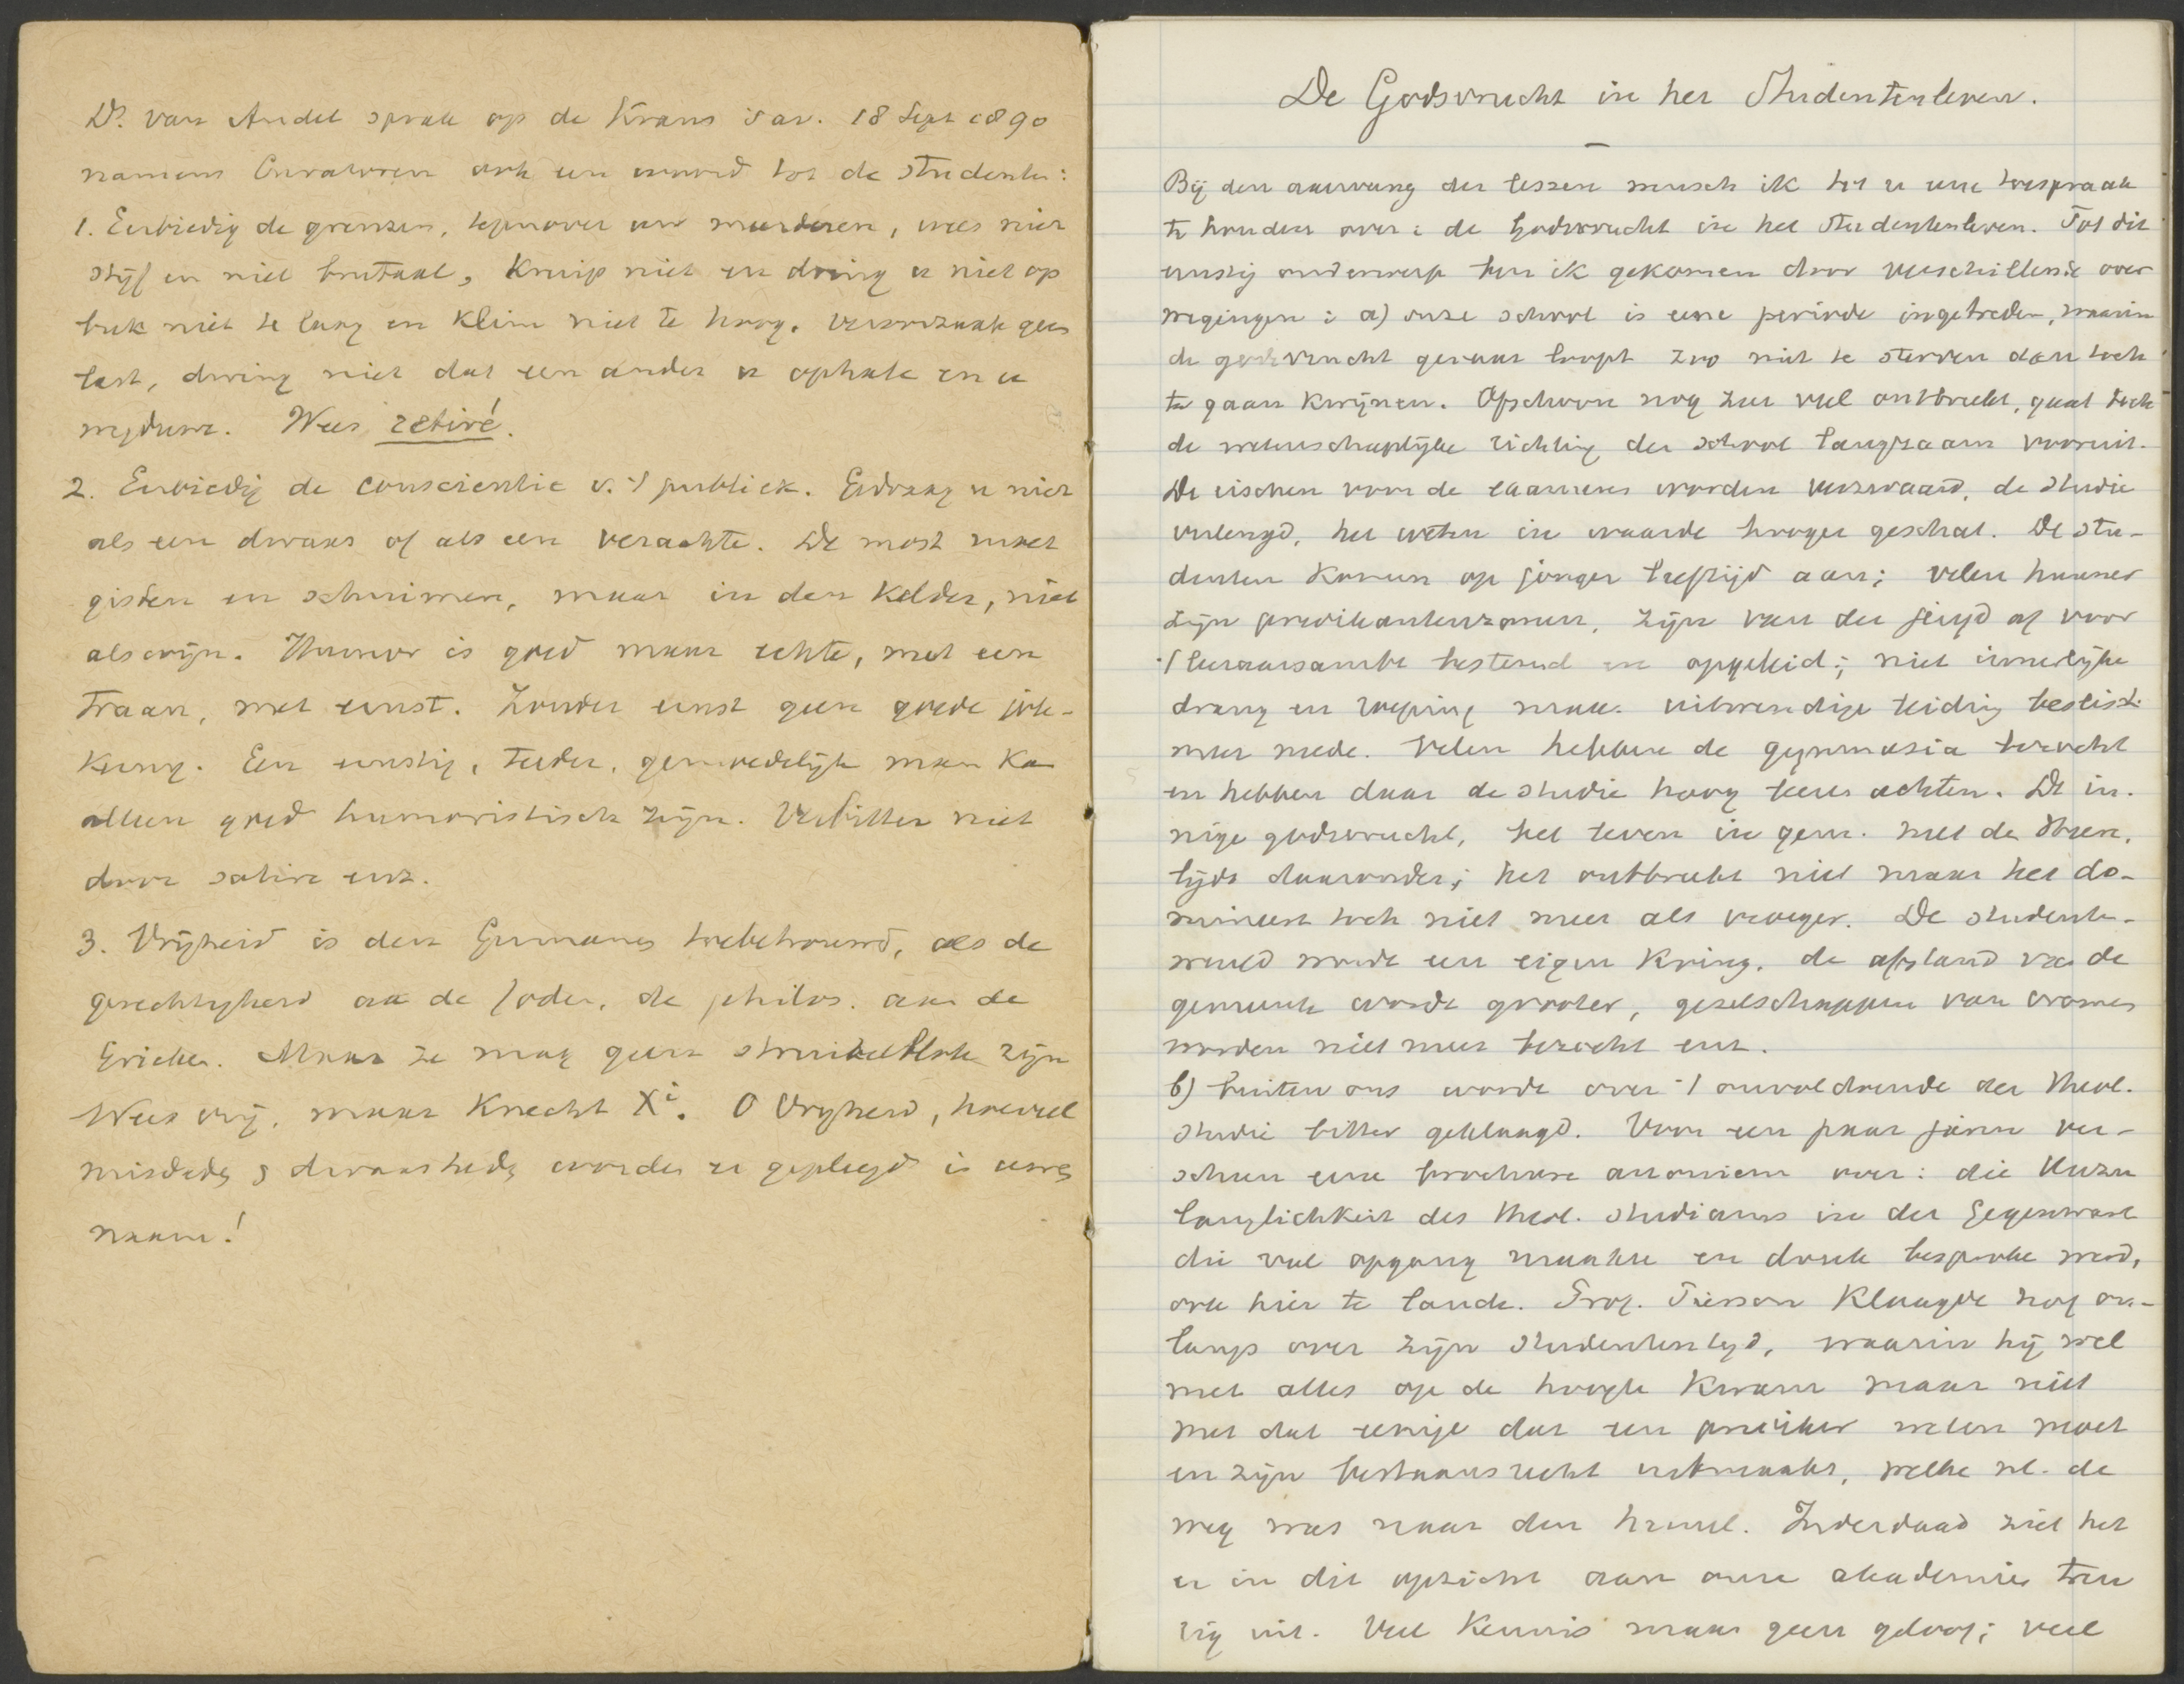 Ds. van Andel sprak op de Krans s av. 18 Sept 1890
namens Curatoren ook een woord tot de studenten:
1. Eerbiedig de grenzen, tegenover uw meerderen, wees niet
stijf en niet brutaal, Kruip niet en dring u niet op
buk niet te laag en Klim niet te hoog. Veroorzaak geen
last, dwing niet dat een ander u ophale en u
wegduwe. Wees retiré.
2. Eerbiedig de conscientie v. 't publiek. Gedraag u niet
als een dwaas of als een verachte. De most moet
gisten en schuimen, maar in den Kelder, niet
als wijn. Humor is goed maar echte, met een
traan, met ernst. Zonder ernst geen goede jok-
King. Een ernstig, teeder, gemoedelijk man Kan
alleen goed humoristisch zijn. Verbitter niet
door satire enz.
3. Vrijheid is den Germanen toebetrouwd, als de
gerechtigheid aan de Joden, de philos. aan de
Grieken. Maar ze mag geen struikelblok zijn
Wees vrij, maar Knecht Xi. O Vrijheid, hoeveel
misdaden & dwaasheden worden er gepleegd in uwen
naam!
De Godsvrucht in het Studentenleven.
Bij den aanvang der lessen wensch ik tot u eene toespraak
te houden over: de Godsvrucht in het Studentenleven. Tot dit
ernstig onderwerp ben ik gekomen door verschillende over
wegingen: a) onze school is eene periode ingetreden, waarin
de godsvrucht gevaar loopt zoo niet te sterven dan toch
te gaan Kwijnen. Ofschoon nog zeer veel ontbreekt, gaat toch
de wetenschaplijke richting der school langzaam vooruit.
De eischen voor de examens worden verzwaard, de studie
verlengd, het weten in waarde hooger geschat. De stu-
denten Komen op jonger leeftijd aan; velen hunner
zijn predikantenzonen, zijn van der jeugd af voor
't leeraarsambt bestemd en opgeleid; niet innerlijke
drang en roeping maar uitwendige leiding beslist
meer mede. Velen hebben de gymnasia bezocht
en hebben daar de studie hoog leeren achten. De in-
nige godsvrucht, het leven in gem. met den Heere,
lijdt daaronder; het ontbreekt niet maar het do-
mineert toch niet meer als vroeger. De studenten-
wereld wordt een eigen Kring, de afstand van de
gemeente wordt grooter, gezelschappen van vromen
worden niet meer bezocht enz.
b) buiten ons wordt over 't onvoldoende der theol.
studie bitter geklaagd. Voor een paar jaren ver-
scheen eene brochure anoniem over: die Unzu
länglichkeit des theol. Studiums in der Gegenwart
die veel opgang maakte en druk besproken werd,
ook hier te lande. Prof. Kla​agde nog on-
langs over zijn studententijd, waarin hij wel
met alles op de hoogte Kwam maar niet
met dat eenige dat een prediker weten moet
en zijn bestaansrecht uitmaakt, welke nl. de
weg was naar den hemel. Inderdaad ziet het
er in dit opzicht aan onze akademies treu
rig uit. Veel Kennis maar geen geloof; veel